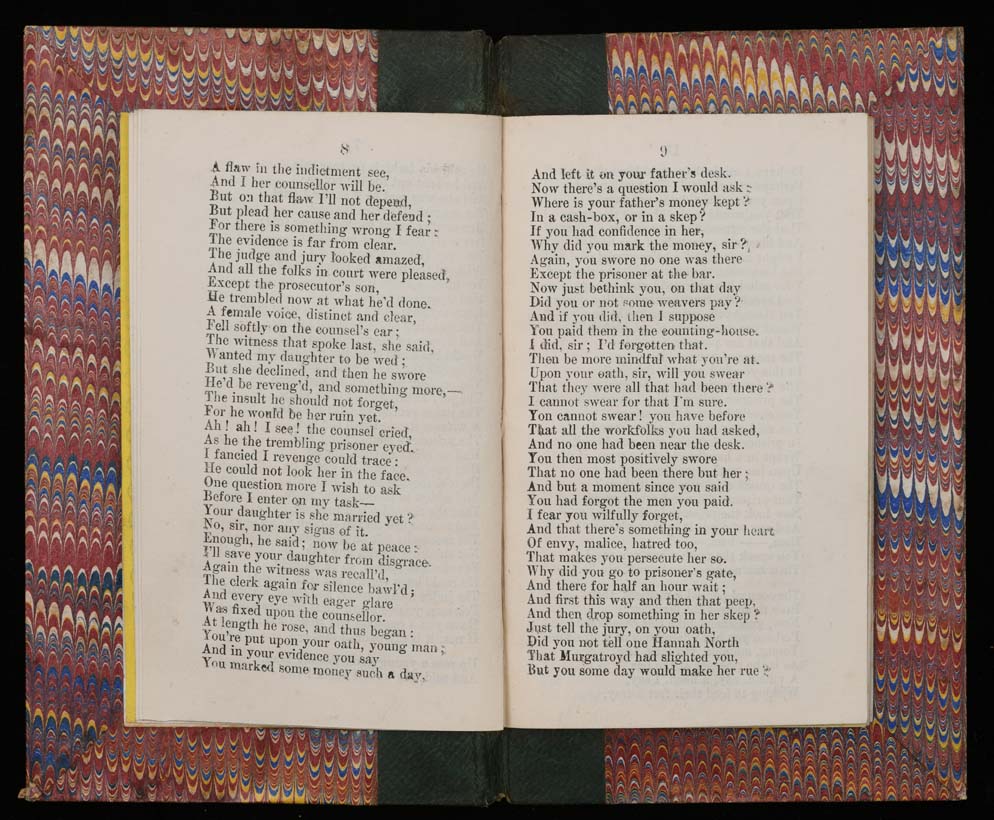 8
A flaw in the indictment see,
And I her counsellor will be.
But on that flaw I'll not depend,
But plead her cause and her defend ;
For there is something wrong I fear :
The evidence is far from clear.
The judge and jury looked amazed,
And all the folks in court were pleased,
Except the prosecutor's son,
He trembled now at what he'd done.
A female voice, distinct and clear,
Fell softly on the counsel's ear ;
The witness that spoke last, she said,
Wanted my daughter to be wed ;
But she declined, and then he swore
He'd be reveng'd, and something more,—
The insult he should not forget,
For he would be her ruin yet.
Ah ! ah ! I see ! the counsel cried,
As he the trembling prisoner eyed.
I fancied I revenge could trace :
He could not look her in the face.
One question more I wish to ask
Before I enter on my task—
Your daughter is she married yet ?
No, sir, nor any signs of it.
Enough, he said ; now be at peace :
I'll save your daughter from disgrace.
Again the witness was recall'd,
The clerk again for silence bawl'd ;
And every eye with eager glare
Was fixed upon the counsellor.
At length he rose, and thus began :
You're put upon your oath, young man ;
And in your evidence you say
You marked some money such a day,
9
And left it on your father's desk.
Now there's a question I would ask :
Where is your father's money kept ?
In a cash-box, or in a skep ?
If you had confidence in her,
Why did you mark the money, sir ?
Again, you swore no one was there
Except the prisoner at the bar.
Now just bethink you, on that day
Did you or not some weavers pay ?
And if you did, then I suppose
You paid them in the counting-house.
I did, sir ; I'd forgotten that.
Then be more mindful what you're at.
Upon your oath, sir, will you swear
That they were all that had been there ?
I cannot swear for that I'm sure.
You cannot swear ! you have before
That all the workfolks you had asked,
And no one had been near the desk.
You then most positively swore
That no one had been there but her ;
And but a moment since you said
You had forgot the men you paid.
I fear you wilfully forget,
And that there's something in your heart
Of envy, malice, hatred too,
That makes you persecute her so.
Why did you go to prisoner's gate,
And there for half an hour wait ;
And first this way and then that peep,
And then drop something in her skep ?
Just tell the jury, on your oath,
Did you not tell one Hannah North
That Murgatroyd had slighted you,
But you some day would make her rue ?